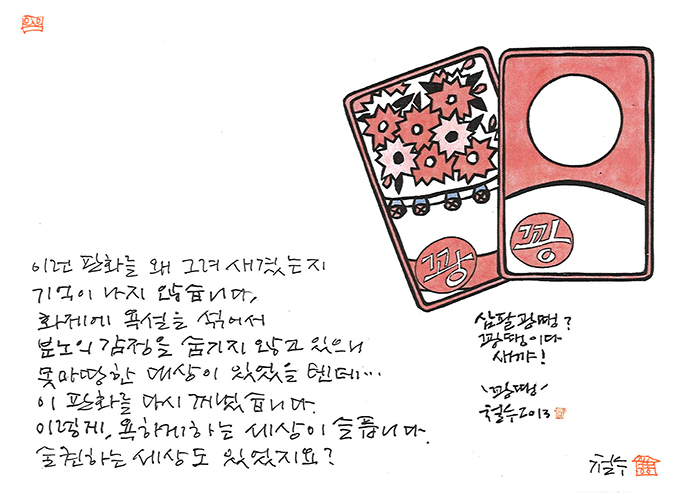 꽝
꽝
삼팔광땡?
꽝땡이다
새꺄!
-꽝땡-
철수2013
이런 판화를 왜 그려 새겼는지
기억이 나지 않습니다.
화제에 욕설을 섞어서
분노의 감정을 숨기지 않고 있으니
못마땅한 대상이 있었을 텐데…
이 판화를 다시 꺼냈습니다.
이렇게, 욕하게하는 세상이 슬픕니다.
술권하는 세상도 있었지요?
철수